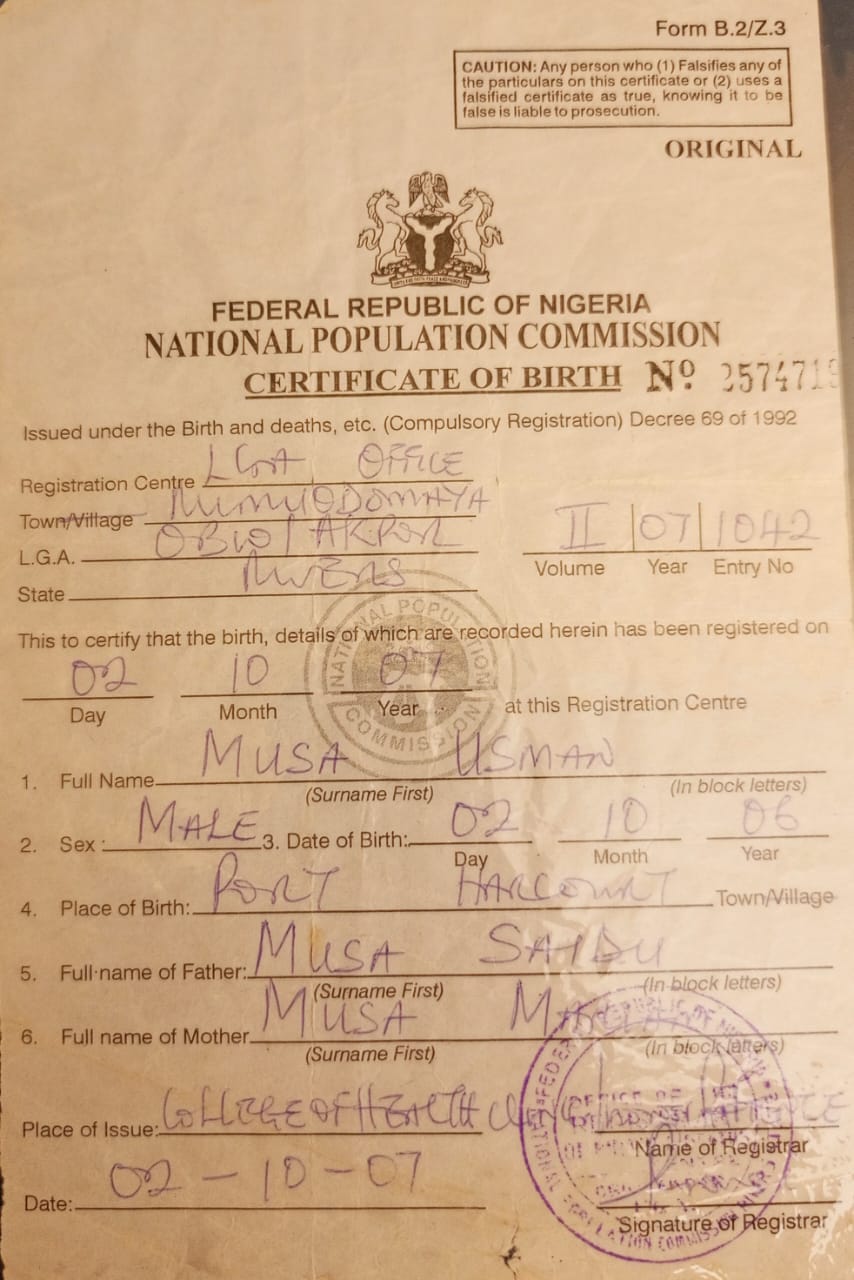 Form B.2/Z.3
CAUTION: Any person who (1) Falsifies any of
the particulars on this certificate or (2) uses a
falsified certificate as true, knowing it to be
false is liable to prosecution.
ORIGINAL
FEDERAL REPUBLIC OF NIGERIA
NATIONAL POPULATION COMMISSION
CERTIFICATE OF BIRTH No 2574719
Issued under the Birth and deaths, etc. (Compulsory Registration) Decree 69 of 1992
Registration Centre LGA OFFICE
Town/Village
L.G.A. OBIO/AKPOR
State RIVERS
II 07 1042
Volume Year Entry No
This to certify that the birth, details of which are recorded herein has been registered on
02 10 07
Day Month Year at this Registration Centre
NATIONAL POPULATION COMMISSION
1. Full Name MUSA USMAN
(Surname First) (In block letters)
2. Sex : MALE 3. Date of Birth: 02 10 06
Day Month Year
4. Place of Birth: PORT HARCOURT Town/Village
5. Full name of Father: MUSA SAIDU
(Surname First) (In block letters)
6. Full name of Mother MUSA
(Surname First) (In block letters)
Place of Issue: COLLEGE OF HEALTH
Name of Registrar
Date: 02-10-07
Signature of Registrar